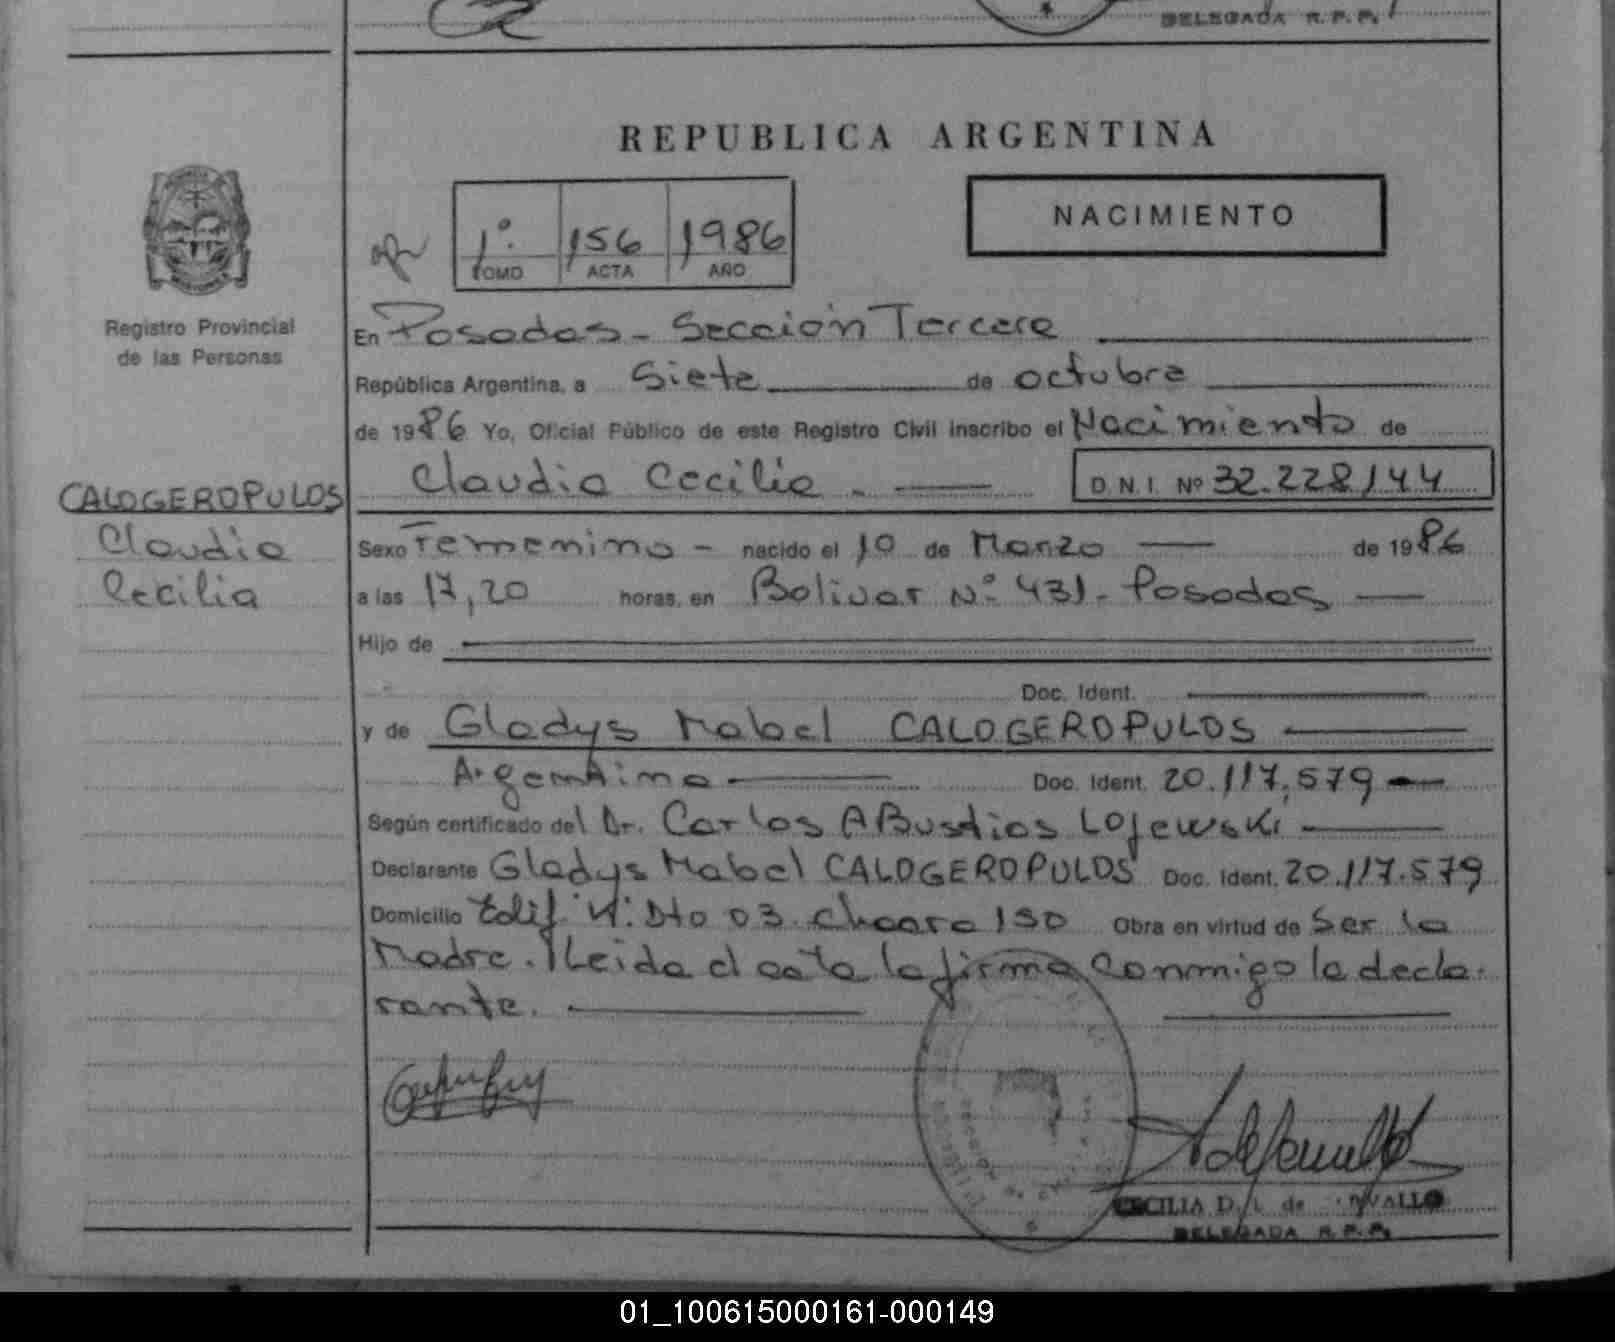 DELEGADA R. P. P.
REPUBLICA ARGENTINA
NACIMIENTO
1º. 156 1986
TOMO ACTA AÑO
Registro Provincial
de las Personas
En Posadas - Sección Tercera
República Argentina, a Siete de octubre
de 1986 Yo, Oficial Público de este Registro Civil inscribo el Nacimiento de
Claudia Cecilia. D.N.I. Nº 32.228144
CALOGEROPULOS
Claudia
Cecilia
Sexo Femenino - nacido el 10 de Marzo de 1986
a las 17,20 horas, en Bolivar Nº 431 - Posadas
Hijo de
Doc. Ident.
y de Gladys Mabel CALOGEROPULOS
Argentina Doc. Ident. 20.117.579
Según certificado del Dr. Carlos A Bustios Lojewski
Declarante Gladys Mabel CALOGEROPULOS Doc. Ident. 20.117.579
Domicilio Edif. Dto 03. Chacra 150 Obra en virtud de Ser la
Madre. Leida el acta la firma conmigo la decla-
rante.
CECILIA D. de
DELEGADA R. P. P.
01_100615000161-000149